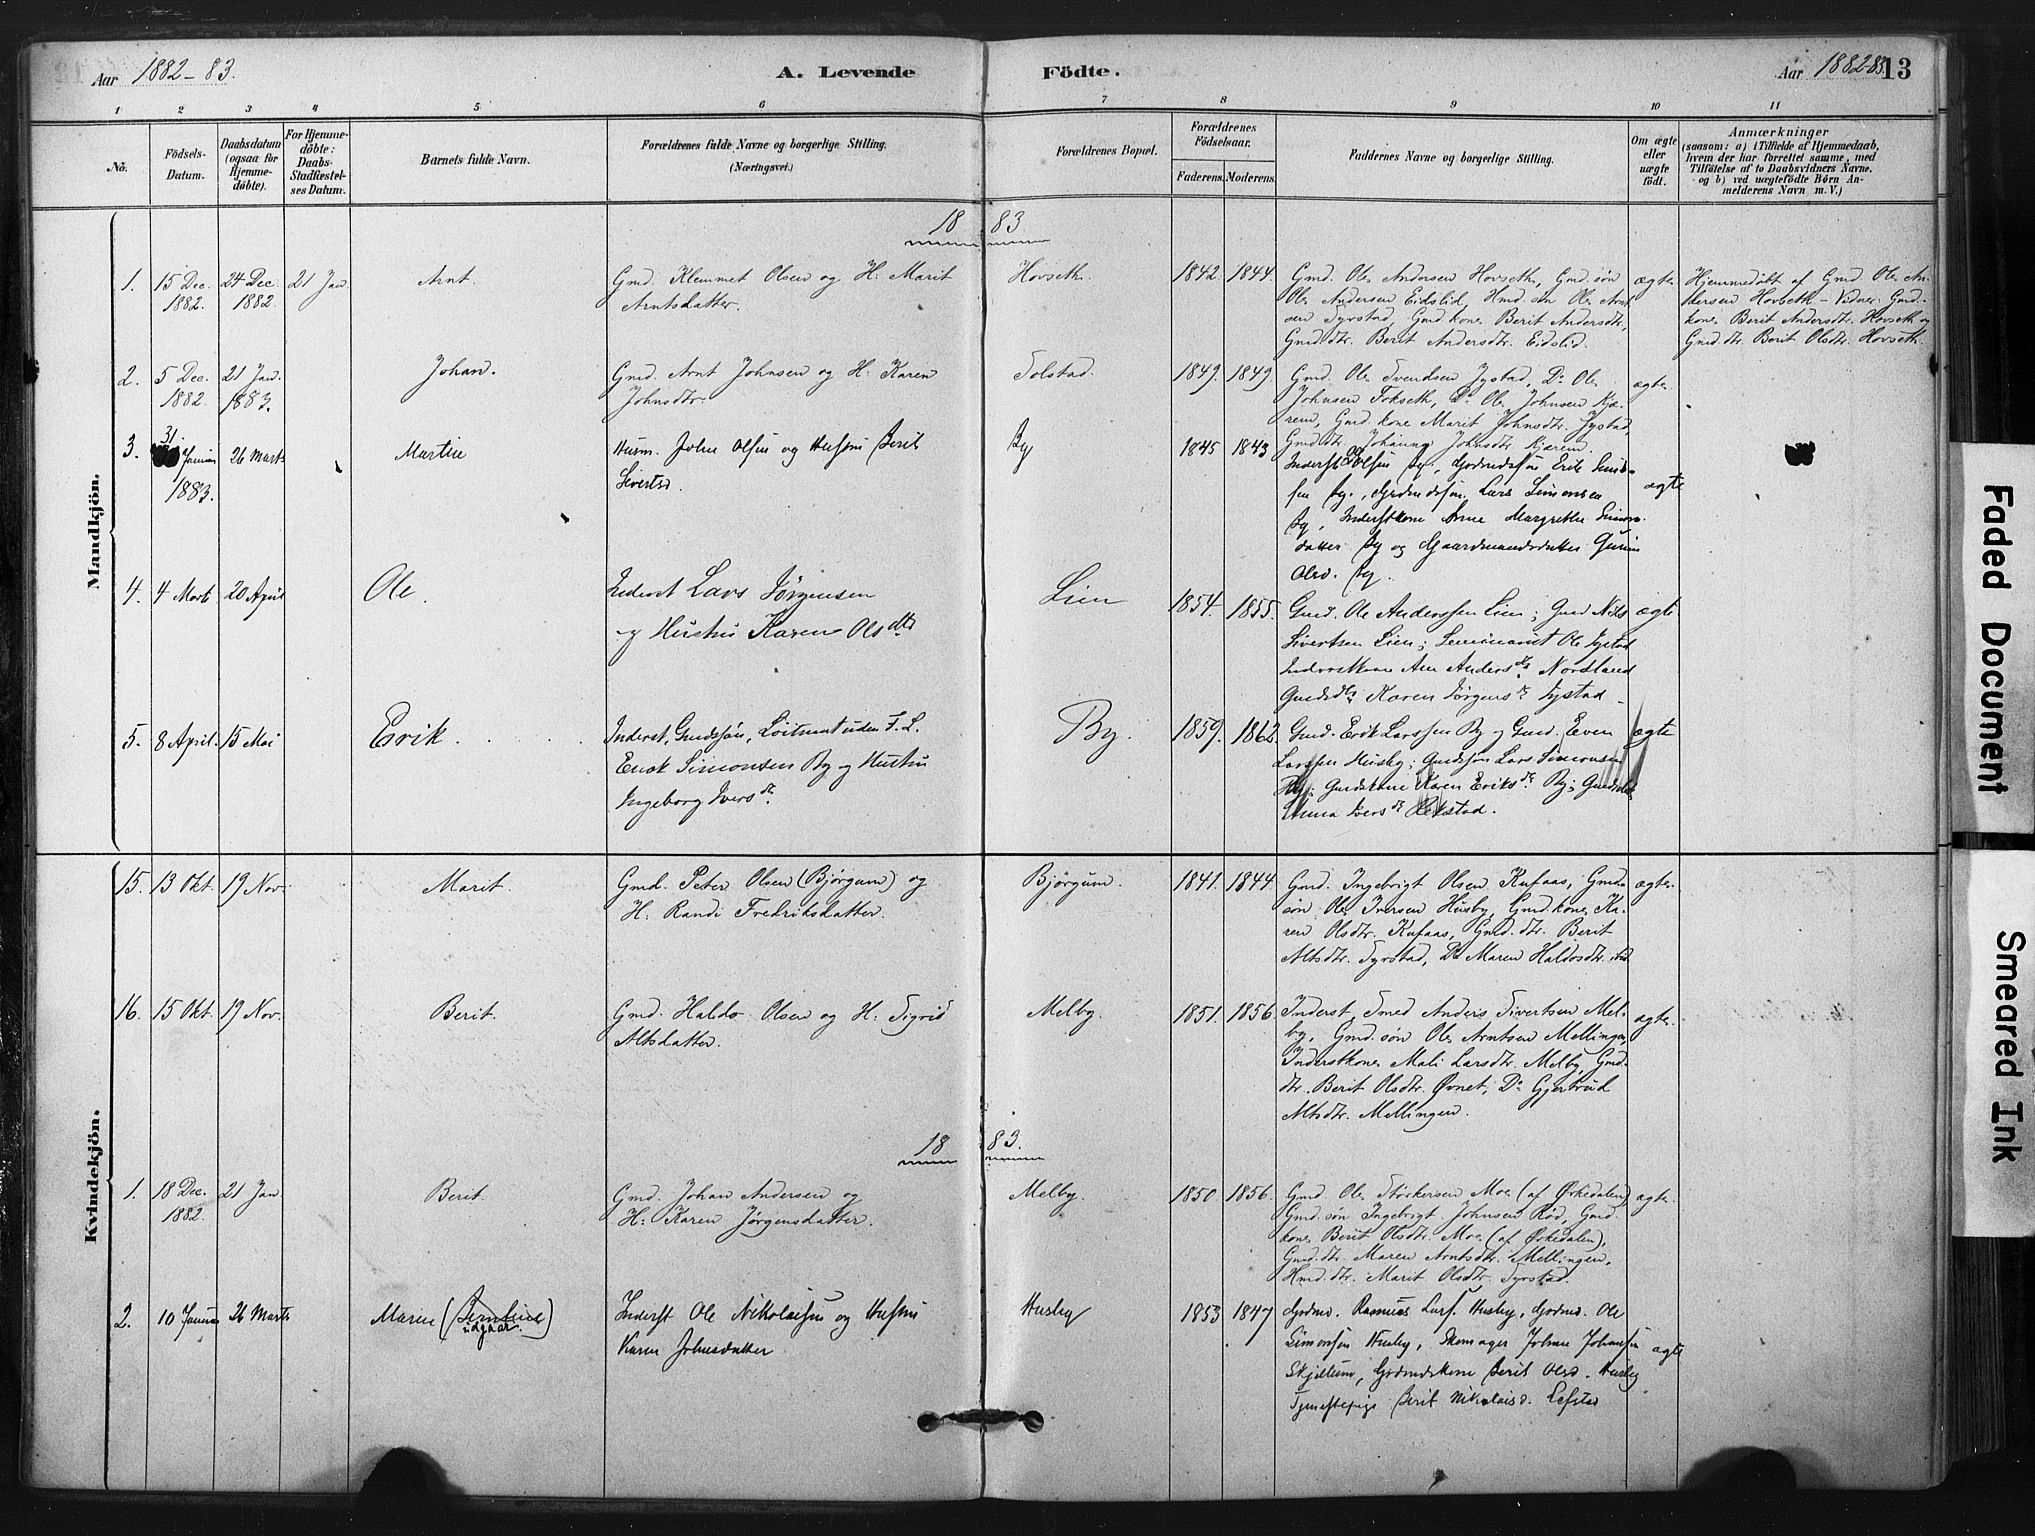 Aar 1882-83.
A. Levende Födte.
Aar 1882-83
13
1 2 3 4 5 6 7 8 9 10 11
No.
Födsels-
Datum.
Daabsdatum
(ogsaa for
Hjemme-
döbte).
For Hjemme-
döbte:
Daabs-
Stadfæstel-
ses Datum.
Barnets fulde Navn.
Forældrenes fulde Navne og borgerlige Stilling.
(Næringsvei.)
Forældrenes Bopæl.
Forældrenes
Födselsaar.
Faderens. Moderens.
Faddernes Navne og borgerlige Stilling.
Om ægte
eller
uægte
födt.
Anmærkninger
(saasom: a) i Tilfælde af Hjemmedaab,
hvem der har forrettet samme, med
Tilföielse af to Daabsvidners Navne.
og b) ved uægtefödte Börn An-
melderens Navn m. V.)
Mandkjön.
18 83
1. 15 Dec. 1882. 24 Dec. 1882. 21 Jan. Arnt.
Gmd. Klemmet Olsen og H: Marit
Arntsdatter.
Hovseth. 1842. 1844.
Gmd. Ole Andersen Hovseth, Gmd.søn
Ole Andersen Eidslid, Hmd.søn Ole Arnt-
sen Tyrstad, Gmd.kone Berit Andersdtr,
Gmd.dtr. Berit Andersdtr. Eidslid.
ægte.
Hjemmedøbt af Gmd. Ole An-
dersen Hovseth - Vidner: Gmd.-
kone Berit Andersdtr. Hovseth og
Gmd.dtr. Berit Olsdtr. Hovseth.
2. 5 Dec. 1882. 21 Jan. 1883. Johan.
Gmd. Arnt Johnsen og H: Karen
Johnsdtr.
Solstad. 1849. 1849.
Gmd. Ole Svendsen Jystad, Do Ole
Johnsen Fokseth, Do Ole Johnsen Kjæ-
rem, Gmd.kone Marit Johnsdtr. Jystad,
Gmd.dtr. Johanna Johnsdtr. Kjærem.
ægte.
3. 31 Januar 1883. 26 Marts Martin
Husm. John Olsen og Hustru Berit
Sivertsd.
By 1845 1843
Inderst Olsen By, Gdmdssøn Erik Simon-
sen By, Gdmdssøn Lars Simonsen
By, Inderstkone Anne Margrethe Simons-
datter By og Gaardmandsdatter Gurine
Olsd. By.
ægte
4. 4 Marts 20 April Ole.
Inderst Lars Jørgensen
og Hustru Karen Olsdtr
Lien 1854. 1855.
Gmd. Ole Anderssen Lien; Gmd Nils
Sivertsen Lien; Seminarist Ole Jystad
Inderstkone Ane Andersdr Nordland
Gmdsdtr Karen Jørgensdr Jystad -
ægte
5. 8 April. 15 Mai Erik.
Inderst, Gmdssøn, Løitnant uden F. L.
Erik Simonsen By og Hustru
Ingeborg Iversdr.
By. 1859. 1862
Gmd. Erik Larssen By og Gmd. Even
Larssen Husby; Gmdssøn Lars Simonsen
By; Gmdskone Karen Eriksdr By; Gmdsdtr
Anna Iversdr Rekstad.
ægte
Kvindekjön.
15. 13 Okt. 19 Nov. Marit.
Gmd. Peter Olsen (Bjørgum) og
H: Randi Fredriksdatter.
Bjørgum. 1841. 1844.
Gmd. Ingebrigt Olsen Kufaas, Gmd-
søn Ole Iversen Husby, Gmd.kone Ka-
ren Olsdtr. Kufaas, Gmd.dtr. Berit
Altsdtr. Tyrstad, Do Maren Haldosdtr. ibid
ægte.
16. 15 Okt. 19 Nov. Berit.
Gmd. Haldo Olsen og H: Sigrid
Altsdatter.
Melby. 1851. 1856.
Inderst Smed Anders Sivertsen Mel-
by, Gmd.søn Ole Arntsen Mellingen,
Inderstkone Mali Larsdtr. Melby, Gmd.-
dtr. Berit Olsdtr. Øvnet, Do Gjertrud
Altsdtr. Mellingen.
ægte.
18 83.
1. 18 Dec. 1882. 21 Jan. Berit.
Gmd. Johan Andersen og
H: Karen Jørgensdatter.
Melby. 1850. 1856.
Gmd Ole Størkersen Moe (af Ørkedalen)
Gmd.søn Ingebrigt Johnsen Rød, Gmd.
kone Berit Olsdtr. Moe (af Ørkedalen),
Gmd.dtr. Maren Arntsdtr. Mellingen,
Hmd.dtr. Marit Olsdtr. Tyrstad.
ægte.
2. 10 Januar 26 Marts Marie ( udgaar.)
Inderst Ole Nikolaisen og Hustru
Karen Johnsdatter
Husby 1853 1847
Gdmd. Rasmus Lars. Husby, Gdmd. Ole
Simonsen Husby, Skomager Johan Johansen
Skjøllum, Gdmdskone Berit Olsd. Husby
Tjenestepige Berit Nikolaisd. Lefstad
ægte
Faded Document
Smeared Ink